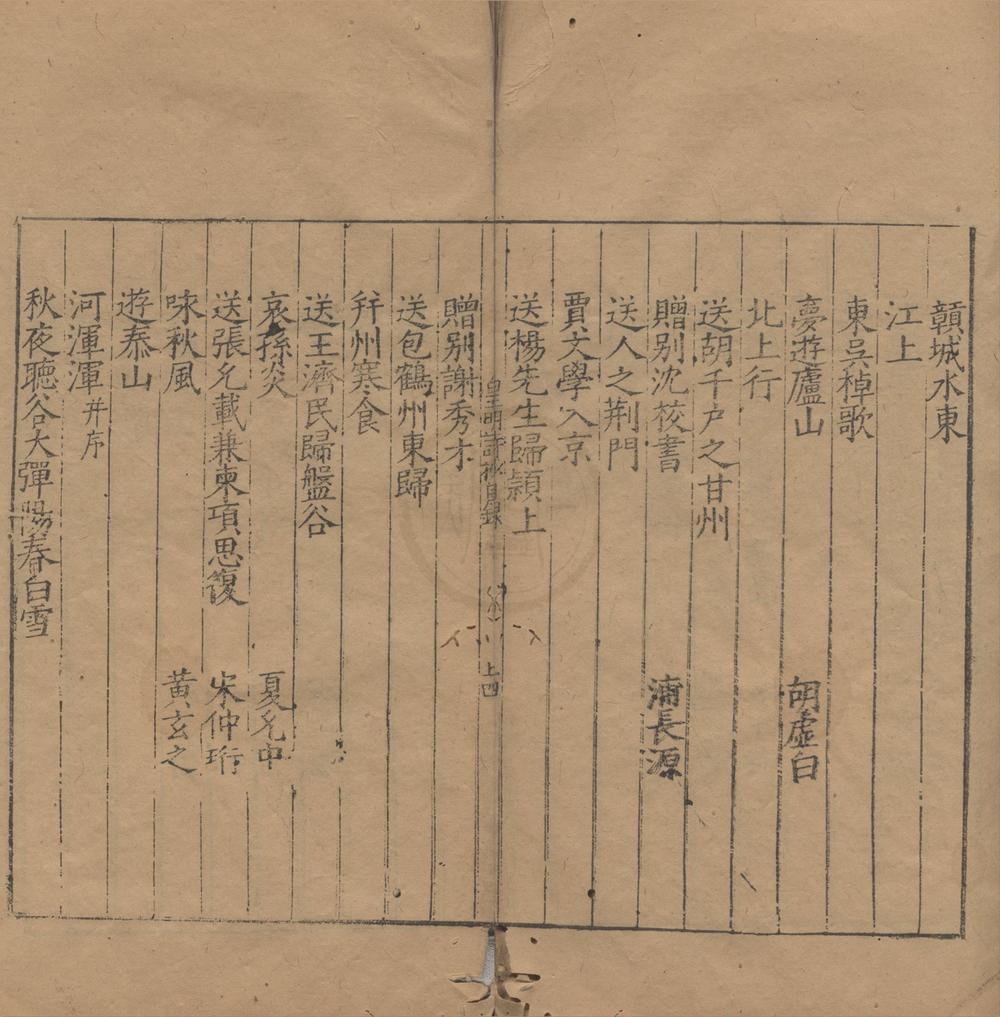 贛城水東
江上
東吳棹歌
夢遊廬山 胡虛白
北上行
送胡千戶之甘州
贈別沈校書 浦長源
送人之荆門
賈文學入京
送楊先生歸潁上
皇明詩抄目録 上四
贈別謝秀才
送包鶴州東歸
幷州寒食
送王濟民歸盤谷
哀孫炎 夏允中
送張允載兼柬項思復 宋仲珩
咏秋風 黃玄之
遊泰山
河渾渾并序
秋夜聽谷大彈陽春白雪